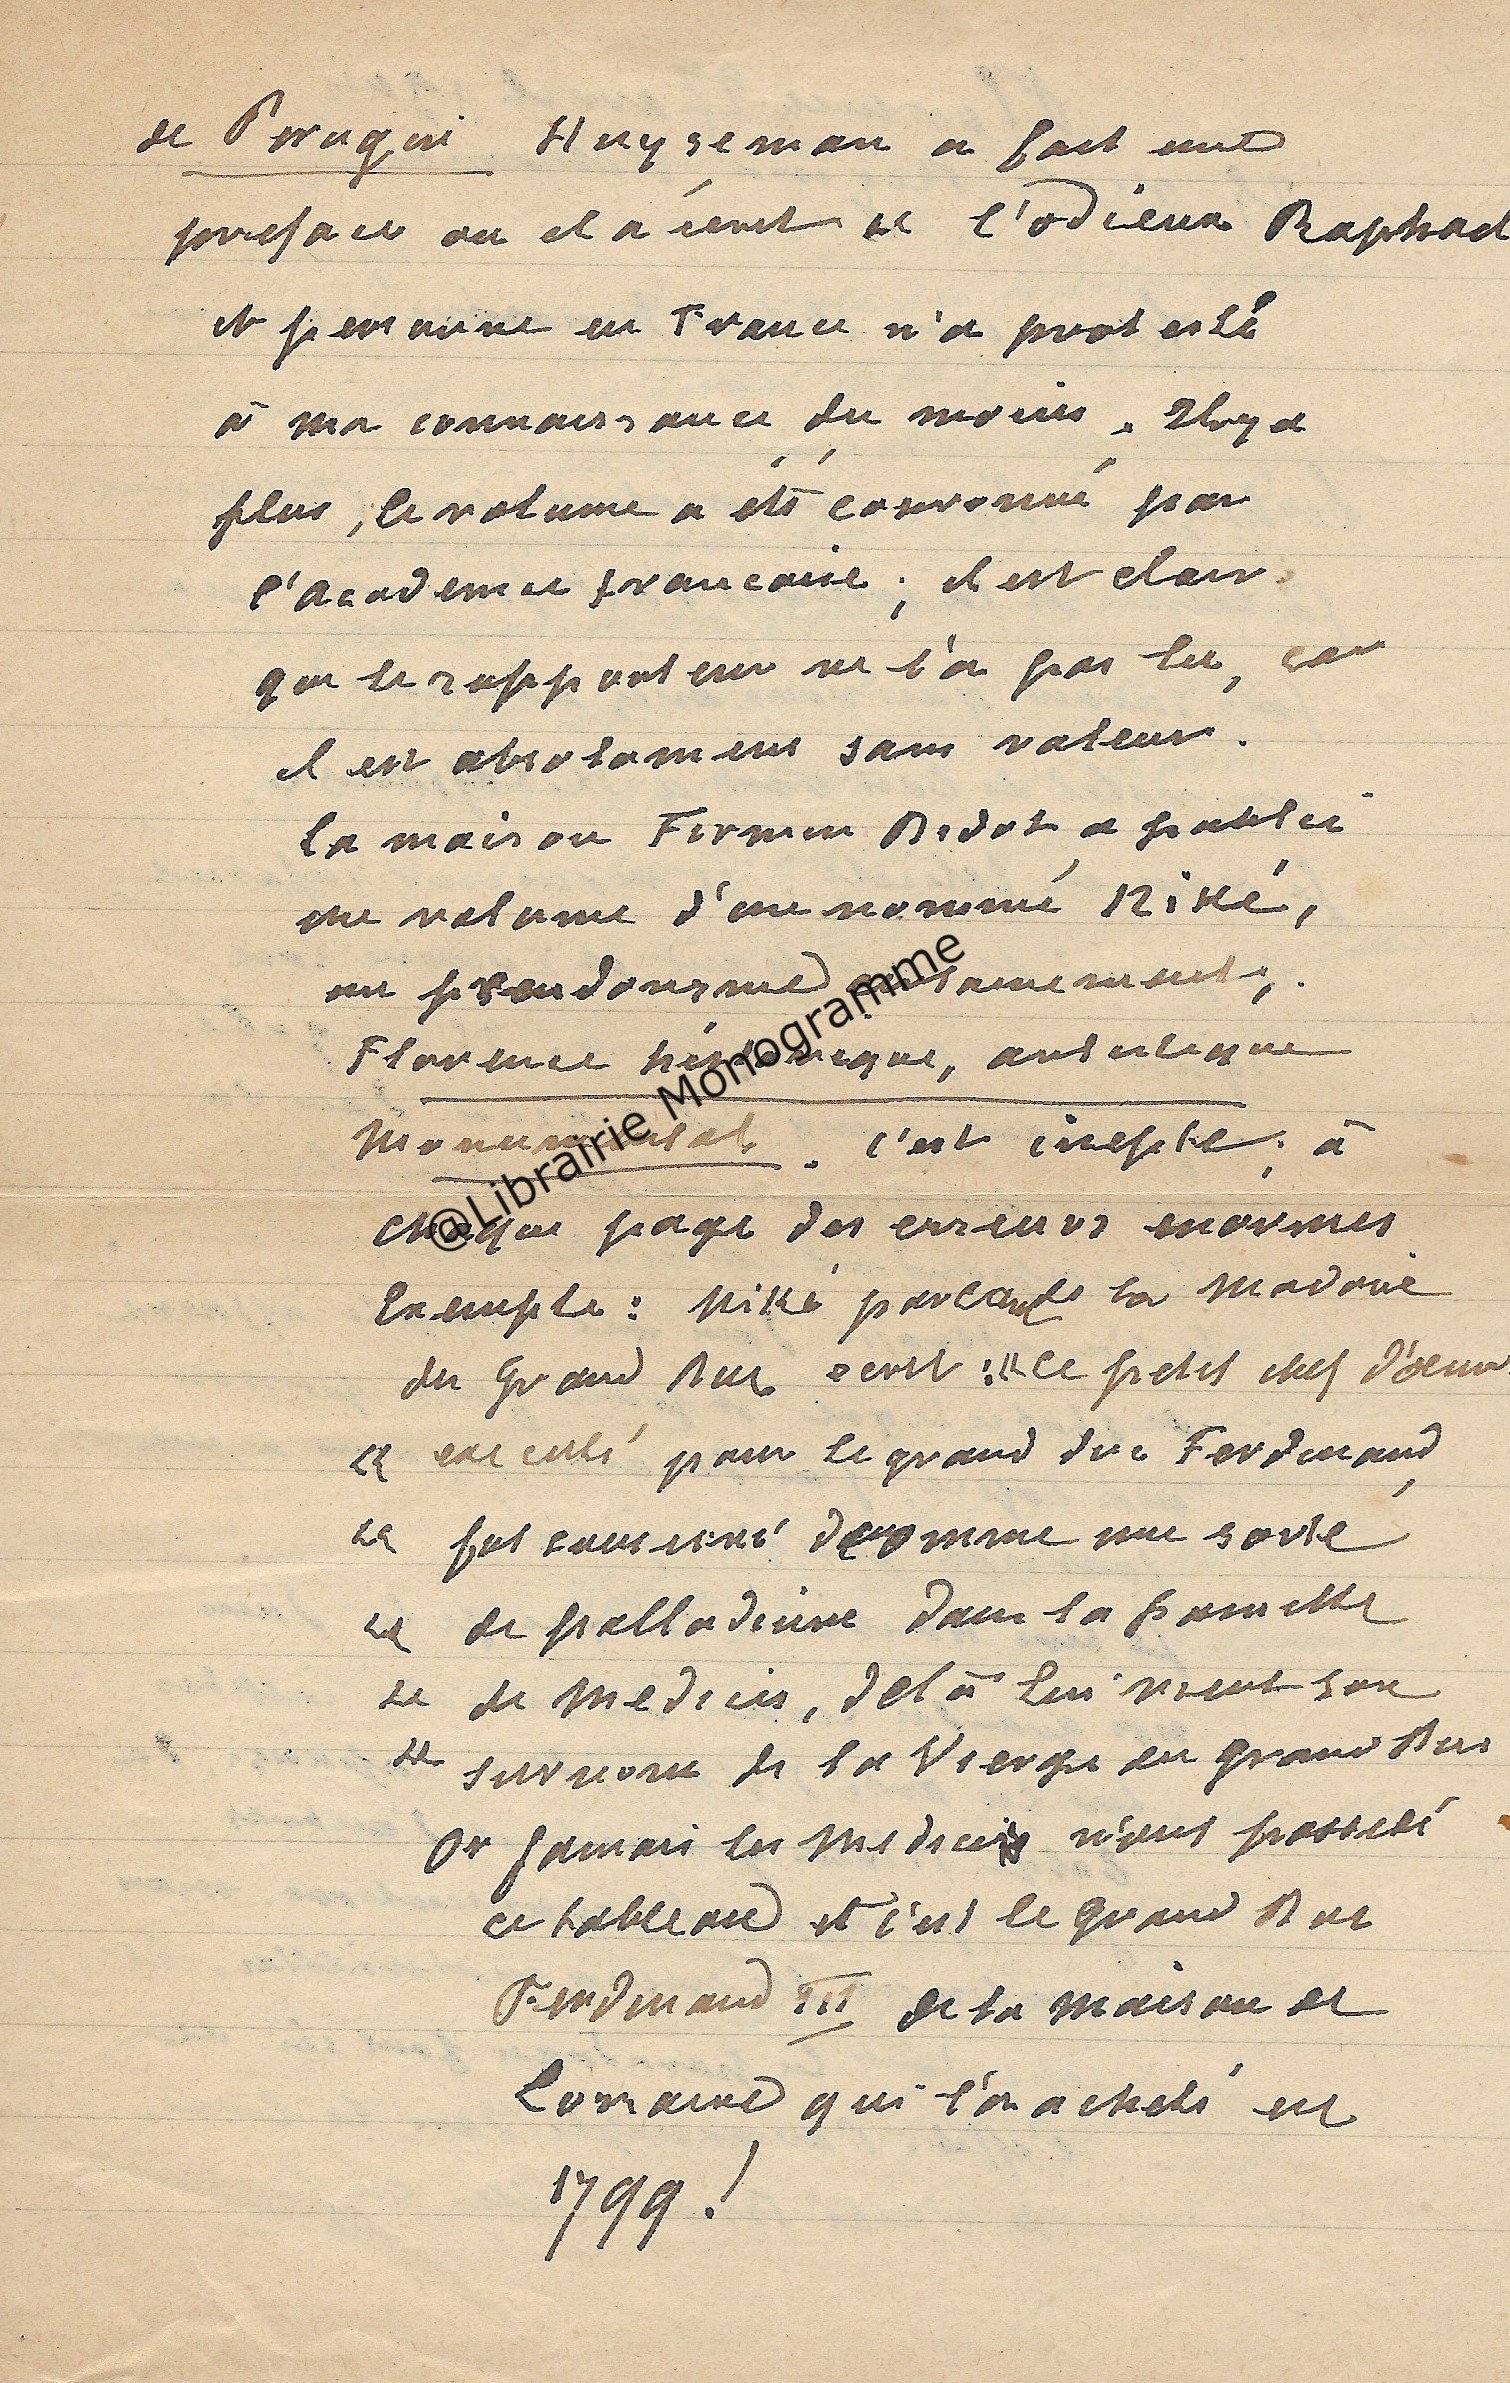 de Perugin Huyseman a fait une
preface ou il a écrit « l'odieux Raphael
et personne en France n'a protesté
à ma connaissance du moins. Il y a
plus, le volume a été couronné par
l'Academie francaise ; il est clair
que le rapporteur ne l'a pas lu, car
il est absolument sans valeur.
La maison Firmin Didot a publié
un volume d'un nommé Niké,
un pseudonyme certainement,
Florence historique, artistique
Monumental. C'est inepte ; à
chaque page des erreurs enormes
Exemple : Niké parlant de la Madone
du Grand Duc ecrit : « Ce petit chef d'œuv
« executé pour le grand duc Ferdinand,
« fut conservé comme une sorte
« de palladium dans la famille
« de Medicis, de là lui vient son
« surnom de la Vierge du Grand Duc
Or jamais les Medicis n'ont possedé
ce tableau et c'est le Grand Duc
Ferdinand III de la Maison de
Lorraine qui l'a acheté en
1799 !
@Librairie Monogramme